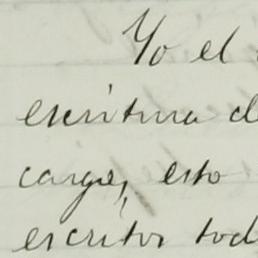 Yo el
escritura d
cargo, esto
escritos tod